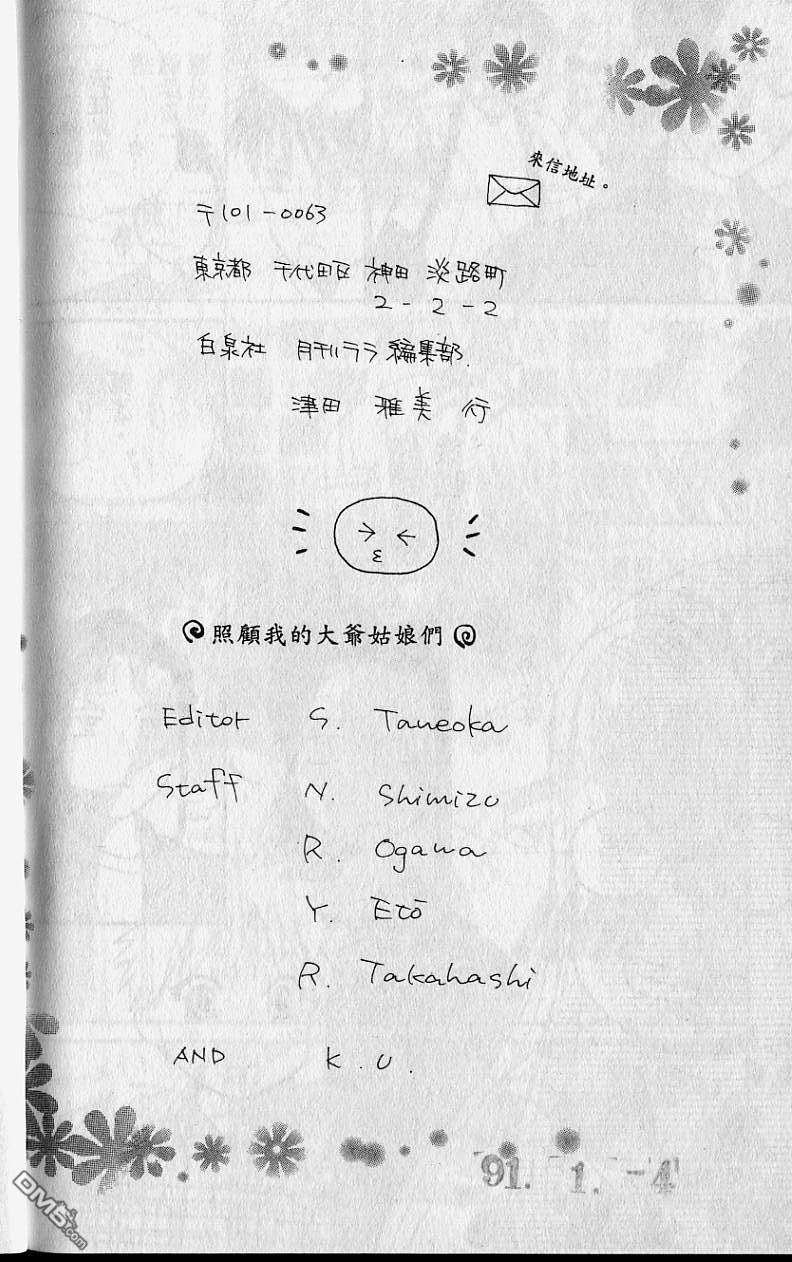 來信地址。
〒101-0063
東京都 千代田区 神田 淡路町
2-2-2
白泉社 月刊ララ編集部.
津田 雅美 行
照顧我的大爺姑娘們
Editor S. Taneoka
Staff N. Shimizu
R. Ogawa
Y. Etō
R. Takahashi
AND K.U.
'91. 1. -4
DM5.com